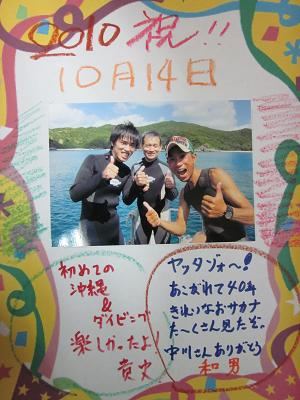 2010 祝!!
10月14日
初めての
沖縄
&
ダイビング
楽しかったよ!
貴史
ヤッタゾォ〜!
あこがれて40年
きれいなおサカナ
た〜くさん見たぞ。
中川さんありがとう
和男